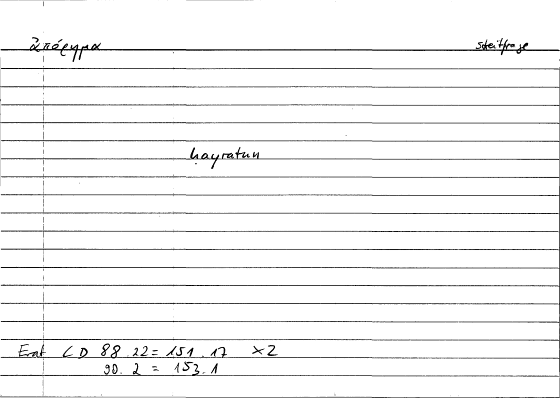 ἀπόρημα Streitfrage
ḥayratun
Erat CD 88.22 = 151.17 x2
90.2 = 153.1